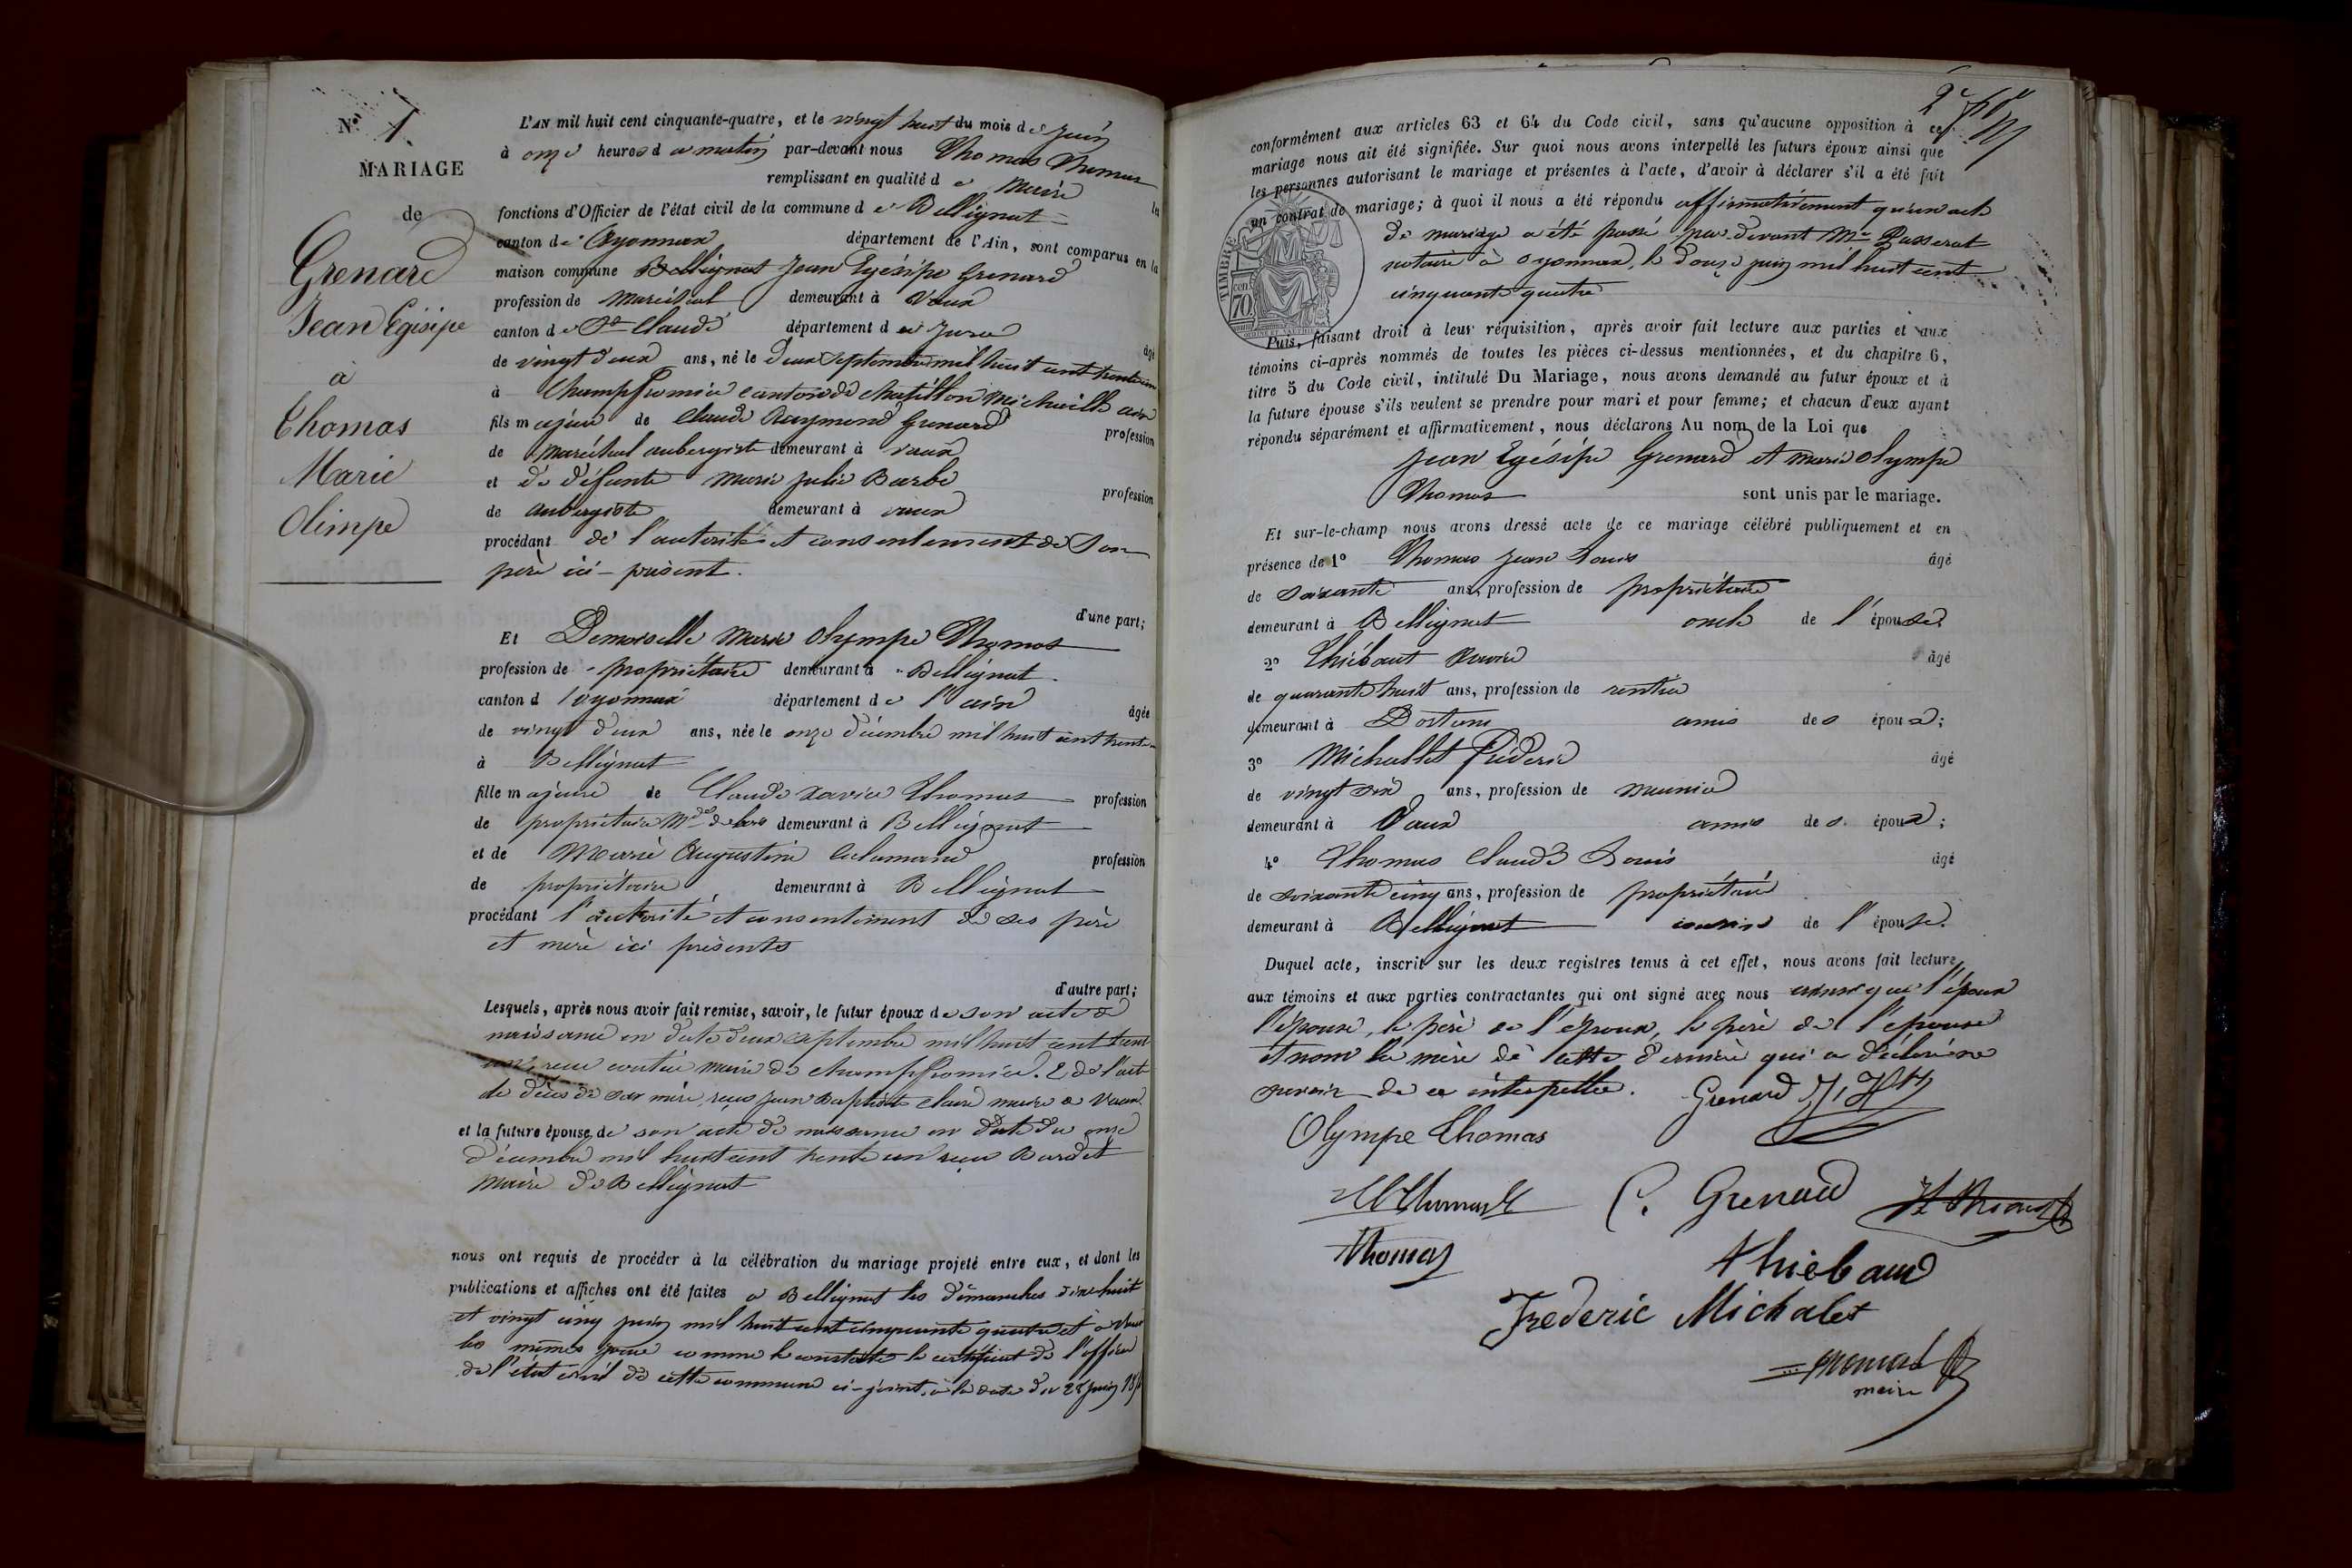 N.º 1
MARIAGE
de
Grenard
Jean Egisipe
à
Thomas
Marie
Olimpe
L'AN mil huit cent cinquante-quatre, et le vingt huit du mois de juin
à onze heures du matin par-devant nous Thomas Thomas
remplissant en qualité de Maire les
fonctions d'Officier de l'état civil de la commune de Bellignat
canton de Oyonnax département de l'Ain, sont comparus en la
maison commune Bellignat Jean Egésipe Grenard
profession de Maréchal demeurant à Vaux
canton de St Claude département du Jura âgé
de vingt deux ans, né le deux septembre mil huit cent trente un
à Champfromier canton de Chatillon Michaille ain
fils majeur de Claude Raymond Grenard profession
de Maréchal aubergiste demeurant à vaux
et de défunte Marie Julie Barbe profession
de aubergiste demeurant à vaux
procédant de l'autorité et consentement de Son
père ici-présent.
d'une part;
Et Demoiselle Marie Olympe Thomas
profession de propriétaire demeurant à Bellignat
canton d'oyonnax département de l'ain âgée
de vingt deux ans, née le onze décembre mil huit cent trente un
à Bellignat
fille majeure de Claude Xavier Thomas profession
de propriétaire Md de bois demeurant à Bellignat
et de Marie Augustine profession
de propriétaire demeurant à Bellignat
procédant l'autorité et consentement de ses père
et mère ici présents
d'autre part;
Lesquels, après nous avoir fait remise, savoir, le futur époux de son acte de
naissance en date deux septembre mil huit cent trente
un, reçu maire de champfromier. 2 de l'acte
de décès de sa mère, reçu Jean Baptiste Claire maire à Vaux
et la future épouse de son acte de naissance en date du onze
décembre mil huit cent trente un reçu Bardet
Maire de Bellignat
nous ont requis de procéder à la célébration du mariage projeté entre eux, et dont les
publications et affiches ont été faites à Bellignat les dimanches dix huit
et vingt cinq juin mil huit cent cinquante quatre et à Vaux
les mêmes jours comme le constate le certificat de l'officier
de l'état civil de cette commune ci-joint, à la date du 28 juin 1854
conformément aux articles 63 et 64 du Code civil, sans qu'aucune opposition à ce
mariage nous ait été signifiée. Sur quoi nous avons interpellé les futurs époux ainsi que
les personnes autorisant le mariage et présentes à l'acte, d'avoir à déclarer s'il a été fait
un contrat de mariage; à quoi il nous a été répondu affirmativement qu'un acte
de mariage a été passé par devant Me Passerat
notaire à oyonnax, le douze juin mil huit cent
cinquante quatre
TIMBRE
70
Puis, faisant droit à leur réquisition, après avoir fait lecture aux parties et aux
témoins ci-après nommés de toutes les pièces ci-dessus mentionnées, et du chapitre 6,
titre 5 du Code civil, intitulé Du Mariage, nous avons demandé au futur époux et à
la future épouse s'ils veulent se prendre pour mari et pour femme; et chacun d'eux ayant
répondu séparément et affirmativement, nous déclarons Au nom de la Loi que
Jean Egésipe Grenard et Marie Olympe
Thomas sont unis par le mariage.
Et sur-le-champ nous avons dressé acte de ce mariage célébré publiquement et en
présence de 1º Thomas Jean Louis âgé
de soixante ans, profession de propriétaire
demeurant à Bellignat oncle de l'épouse
2º Thiébaut Xavier âgé
de quarante huit ans, profession de rentier
demeurant à Dortan amis des époux;
3º Michallet Fréderic âgé
de vingt six ans, profession de meunier
demeurant à Vaux amis des époux;
4º Thomas Claude Louis âgé
de soixante cinq ans, profession de propriétaire
demeurant à Bellignat cousins de l'épouse.
Duquel acte, inscrit sur les deux registres tenus à cet effet, nous avons fait lecture
aux témoins et aux parties contractantes qui ont signé avec nous ainsi que l'époux
l'épouse, le père de l'époux, le père de l'épouse
et non la mère de cette dernière qui a déclaré ne
savoir de ce interpellée. Grenard
Olympe Thomas
C. Grenard
Thomas
Thiebaud
Frederic Michalet
Thomas
maire